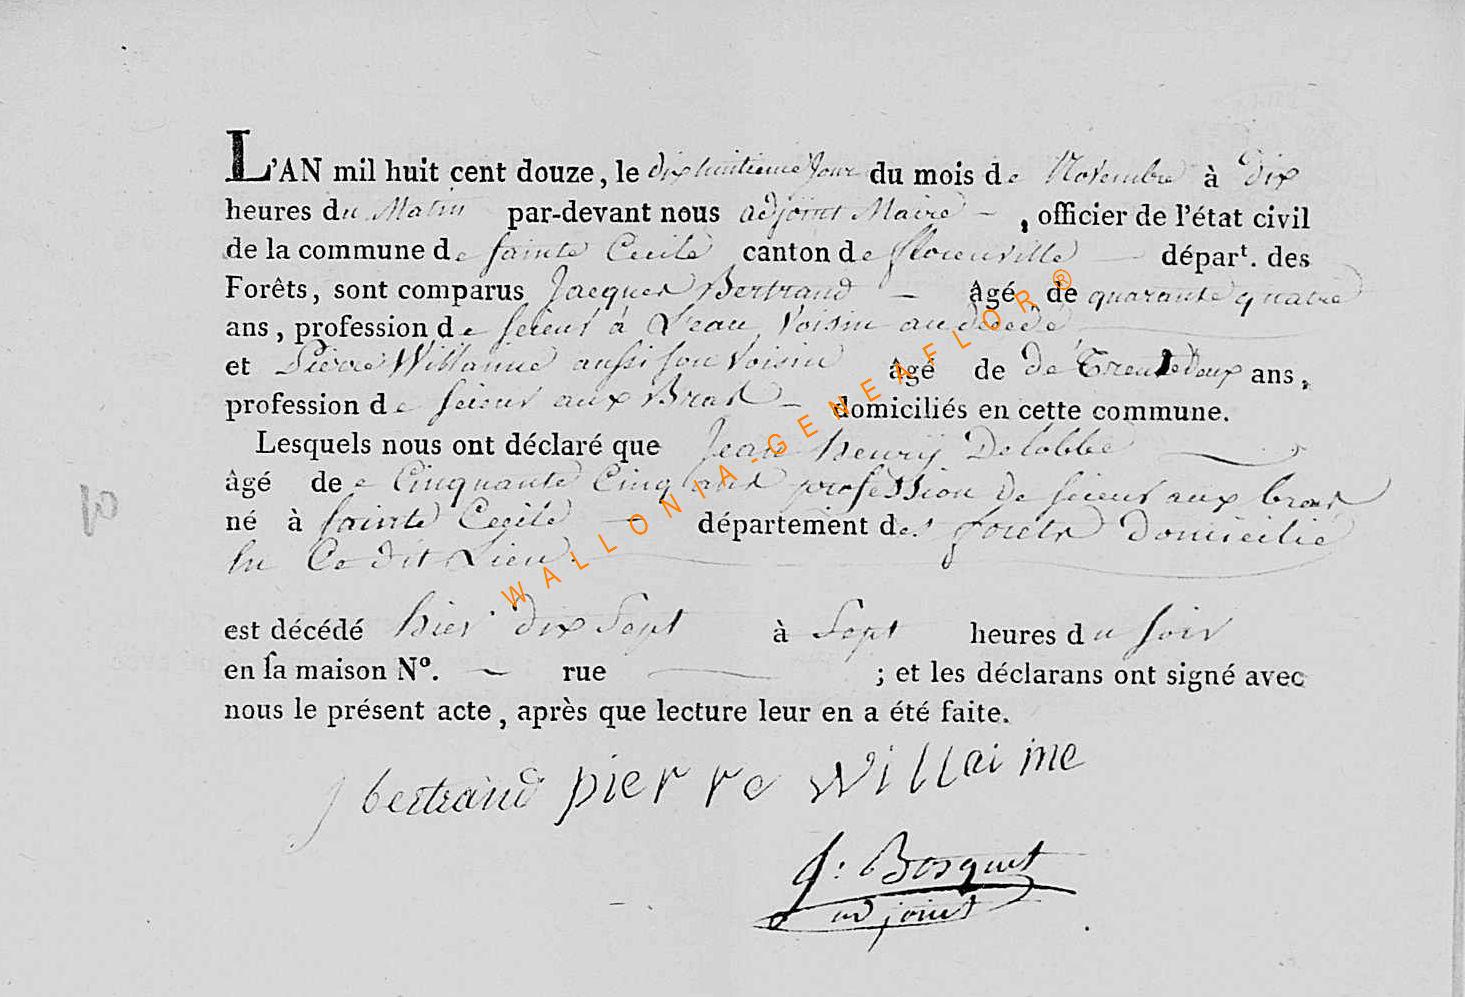 L'AN mil huit cent douze, le dix huitieme jour du mois de Novembre à dix
heures du Matin par-devant nous adjoint Maire, officier de l'état civil
de la commune de Sainte Cecile canton de florenville dépar<sup>t</sup>. des
Forêts, sont comparus Jacques Bertrand âgé de quarante quatre
ans, profession de scieur à L'eau Voisin au décedé
et Pierre Willaime aussi son Voisin âgé de de Trente deux ans,
profession de scieur aux Bras domiciliés en cette commune.
Lesquels nous ont déclaré que Jean henry Delobbe
âgé de Cinquante Cinq ans profession de scieur aux bras
né à Sainte Cecile département des forêts domicilié
Ce dit Lieu.
est décédé hier dix sept à Sept heures du soir
en sa maison Nº. rue ; et les déclarans ont signé avec
nous le présent acte, après que lecture leur en a été faite.
J bertrand pierre willaime
Bosquet
adjoint
WALLONIA-GENEAFLOR®